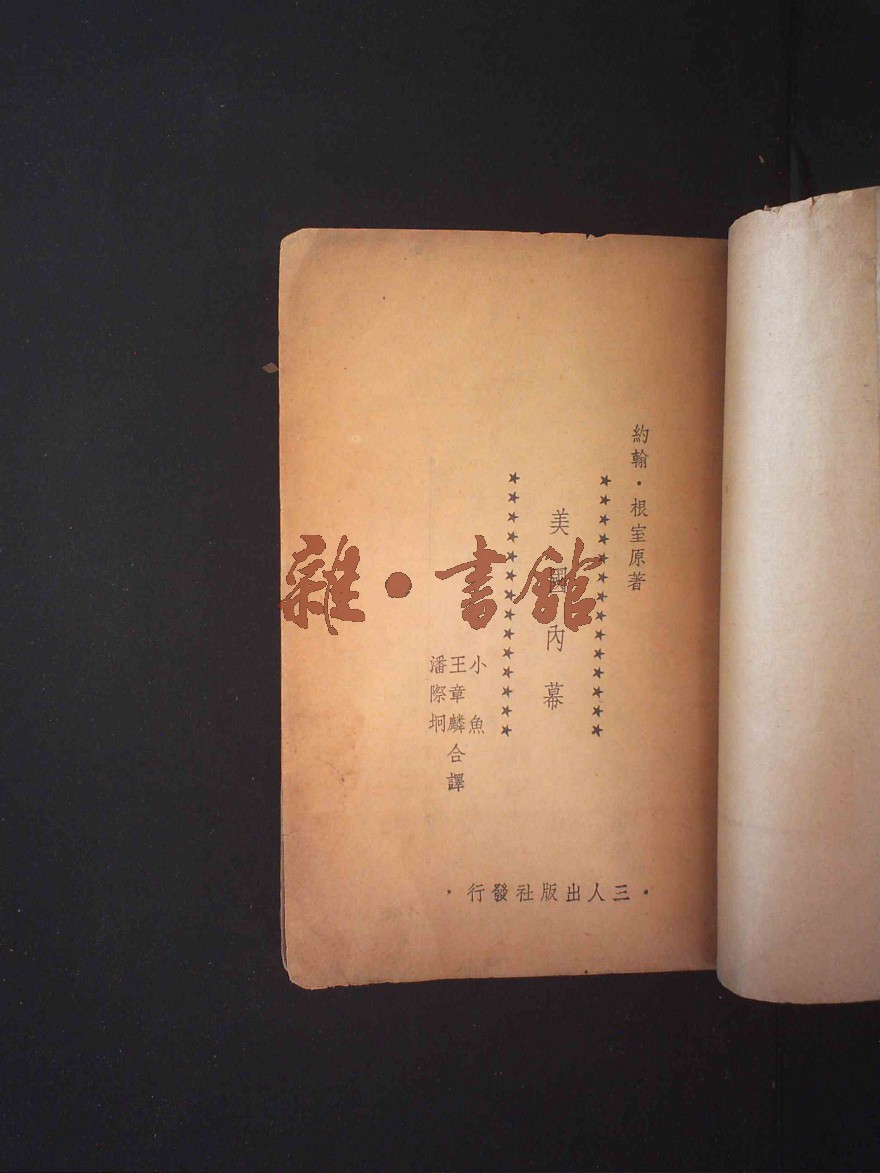 約翰·根室原著
美國內幕
小魚
王章麟合譯
潘際坰
·三人出版社發行·
雜·書館